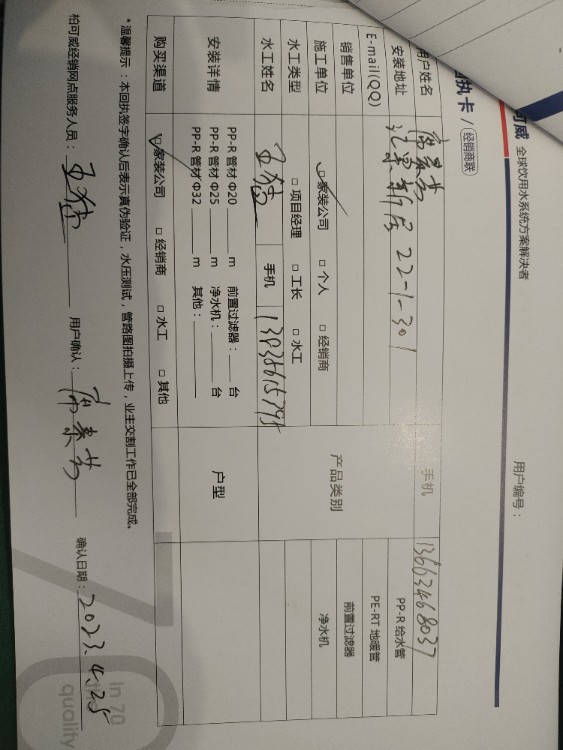 可威 全球饮用水系统方案解决者
用户编号：
执卡 / 经销商联
用户姓名
手机 13663468037
安装地址 新居 22-1-301
E-mail(QQ)
销售单位
产品类别
PP-R 给水管
PE-RT 地暖管
前置过滤器
净水机
施工单位 □家装公司 □个人 □经销商
水工类型 □项目经理 □工长 □水工
水工姓名 王猛 手机
安装详情
PP-R 管材 Φ20 m 前置过滤器： 台
PP-R 管材 Φ25 m 净水机： 台
PP-R 管材 Φ32 m 其他：
户型
购买渠道 □家装公司 □经销商 □水工 □其他
*温馨提示：本回执签字确认后表示真伪验证，水压测试，管路图拍摄上传，业主交割工作已全部完成。
柏可威经销网点服务人员：王猛 用户确认： 确认日期：2023.4.25
In 70
quality